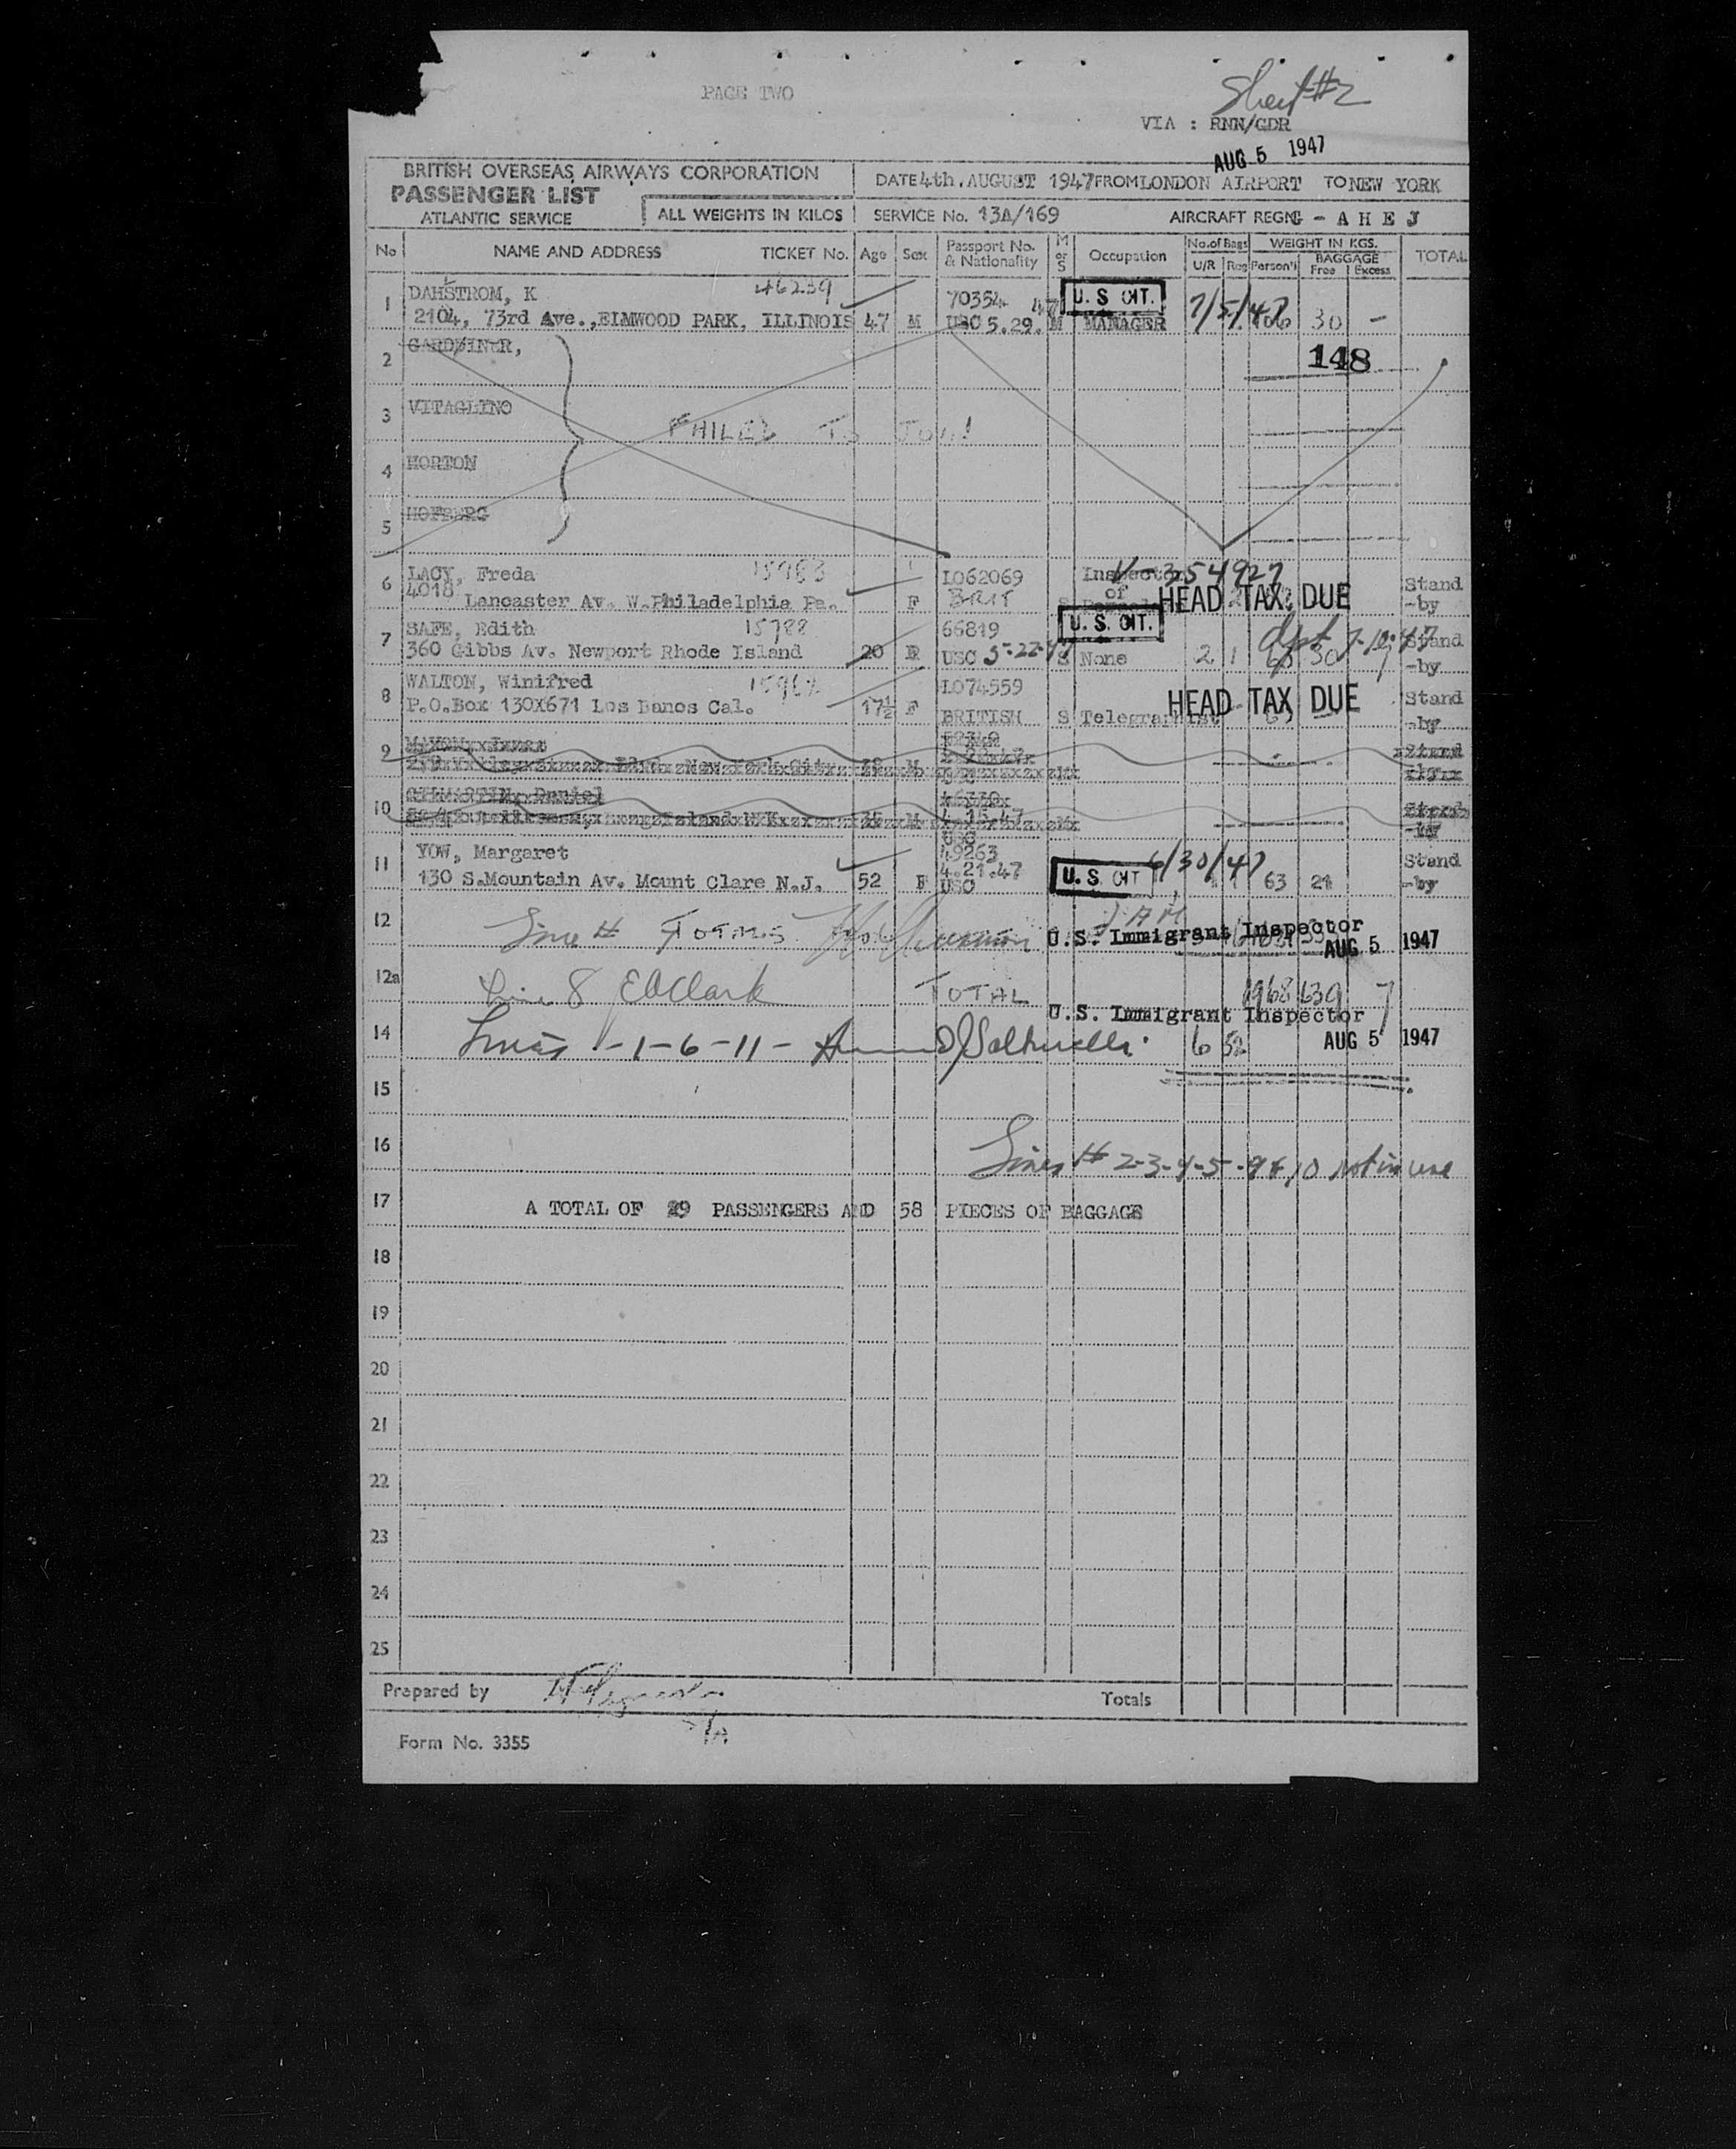 PAGE TWO
Sheet #2
VIA : RNN/GDR
AUG 5 1947
BRITISH OVERSEAS AIRWAYS CORPORATION
PASSENGER LIST
ATLANTIC SERVICE
ALL WEIGHTS IN KILOS
DATE 4th. AUGUST 1947 FROM LONDON AIRPORT TO NEW YORK
SERVICE No. 13A/169 AIRCRAFT REGN G - A H E J
No NAME AND ADDRESS TICKET No. Age Sex Passport No. & Nationality M or S Occupation No. of Bags U/R Reg Person'l WEIGHT IN KGS. BAGGAGE Free Excess TOTAL
1 DAHSTROM, K 46239 70354 U. S CIT.
2104, 73rd Ave., ELMWOOD PARK, ILLINOIS 47 M USC 5.29. 47 M MANAGER 7/5/47 30 -
2 GARDINER, 148
3 VITAGLINO
FAILED TO JOIN
4 HORTON
5 HOFBERG
6 LACY, Freda 15963 L062069 Inspector V-354927 Stand
4018 Lancaster Av. W.Philadelphia Pa. F BRIT S of HEAD TAX DUE -by
7 SAFE, Edith 15788 66819 U. S. CIT. Stand
360 Gibbs Av. Newport Rhode Island 20 F USC 5-22-47 S None 2 1 30 -by
8 WALTON, Winifred L074559 HEAD TAX DUE Stand
P.O.Box 130X671 Los Banos Cal. 17½ F BRITISH S Telegraphist -by
9
10 Daniel
4.15.47
USC
11 YOW, Margaret 49263 6/30/47 Stand
130 S.Mountain Av. Mount Clare N.J. 52 F 4.21.47 USC U. S CIT 63 21 -by
12 Line # TOTALS U.S. Immigrant Inspector AUG 5 1947
12a Line 8 TOTAL 1968 639 7
U.S. Immigrant Inspector
14 Lines -1-6-11- 6 52 AUG 5 1947
15
16 Lines # 2-3-4-5-9 & 10 not in use
17 A TOTAL OF 29 PASSENGERS AND 58 PIECES OF BAGGAGE
18
19
20
21
22
23
24
25
Prepared by Totals
Form No. 3355